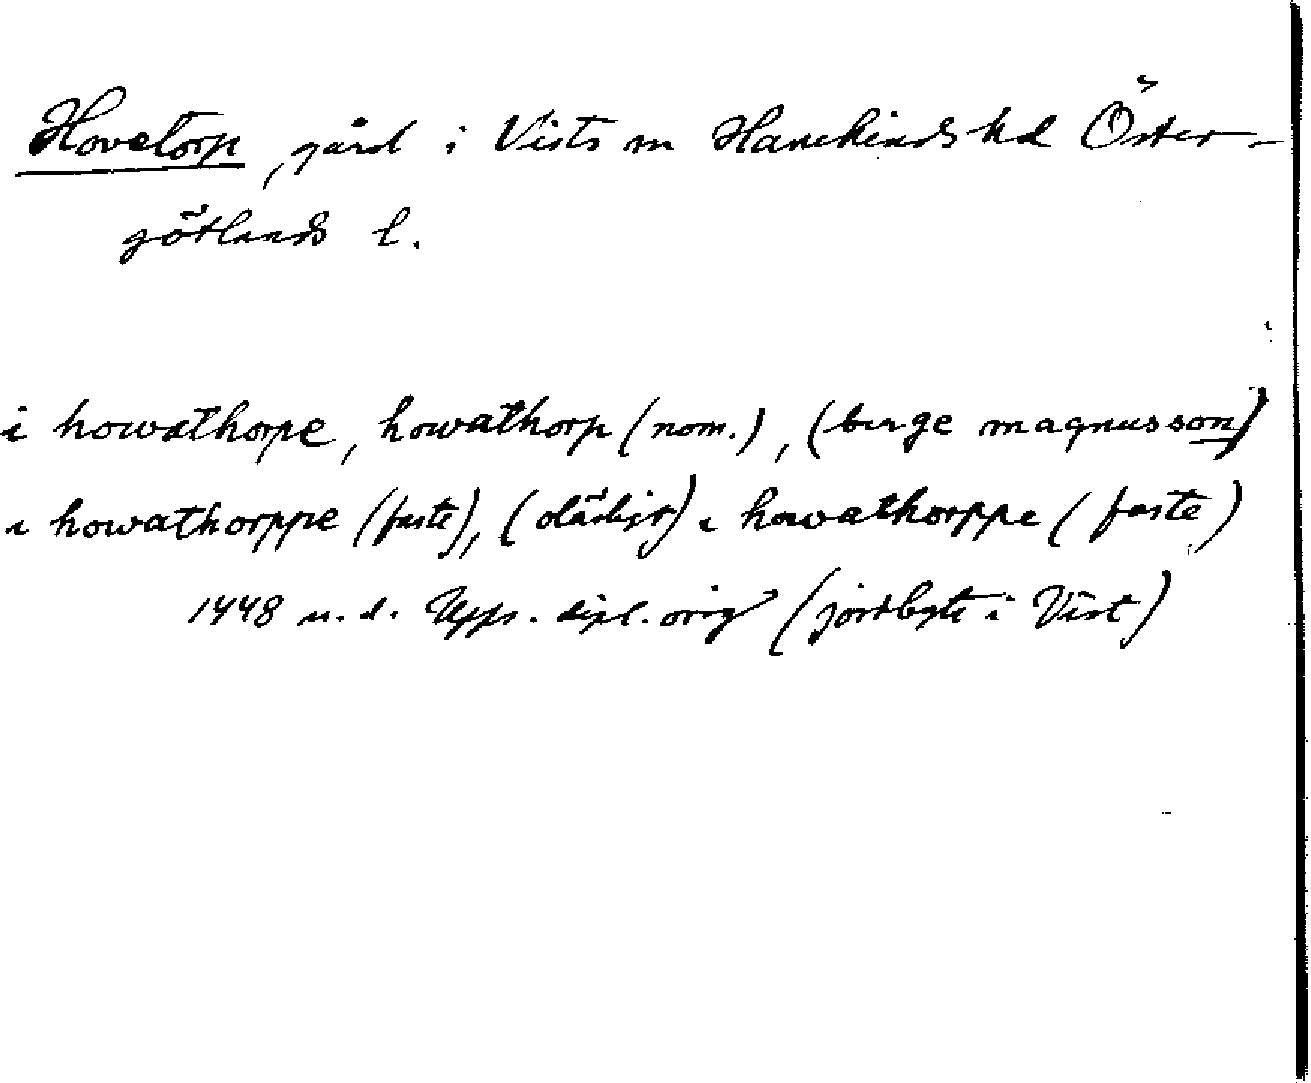 Hovetorp, gård i Vists sn Hanekinds hd Öster-
götlands l.
i howathorpe, howathorp (nom.), (birge magnusson)
i howathorppe (faste), i howathorppe (faste)
1448 u.d. Upps. dipl. orig (jordbyte i Vist)